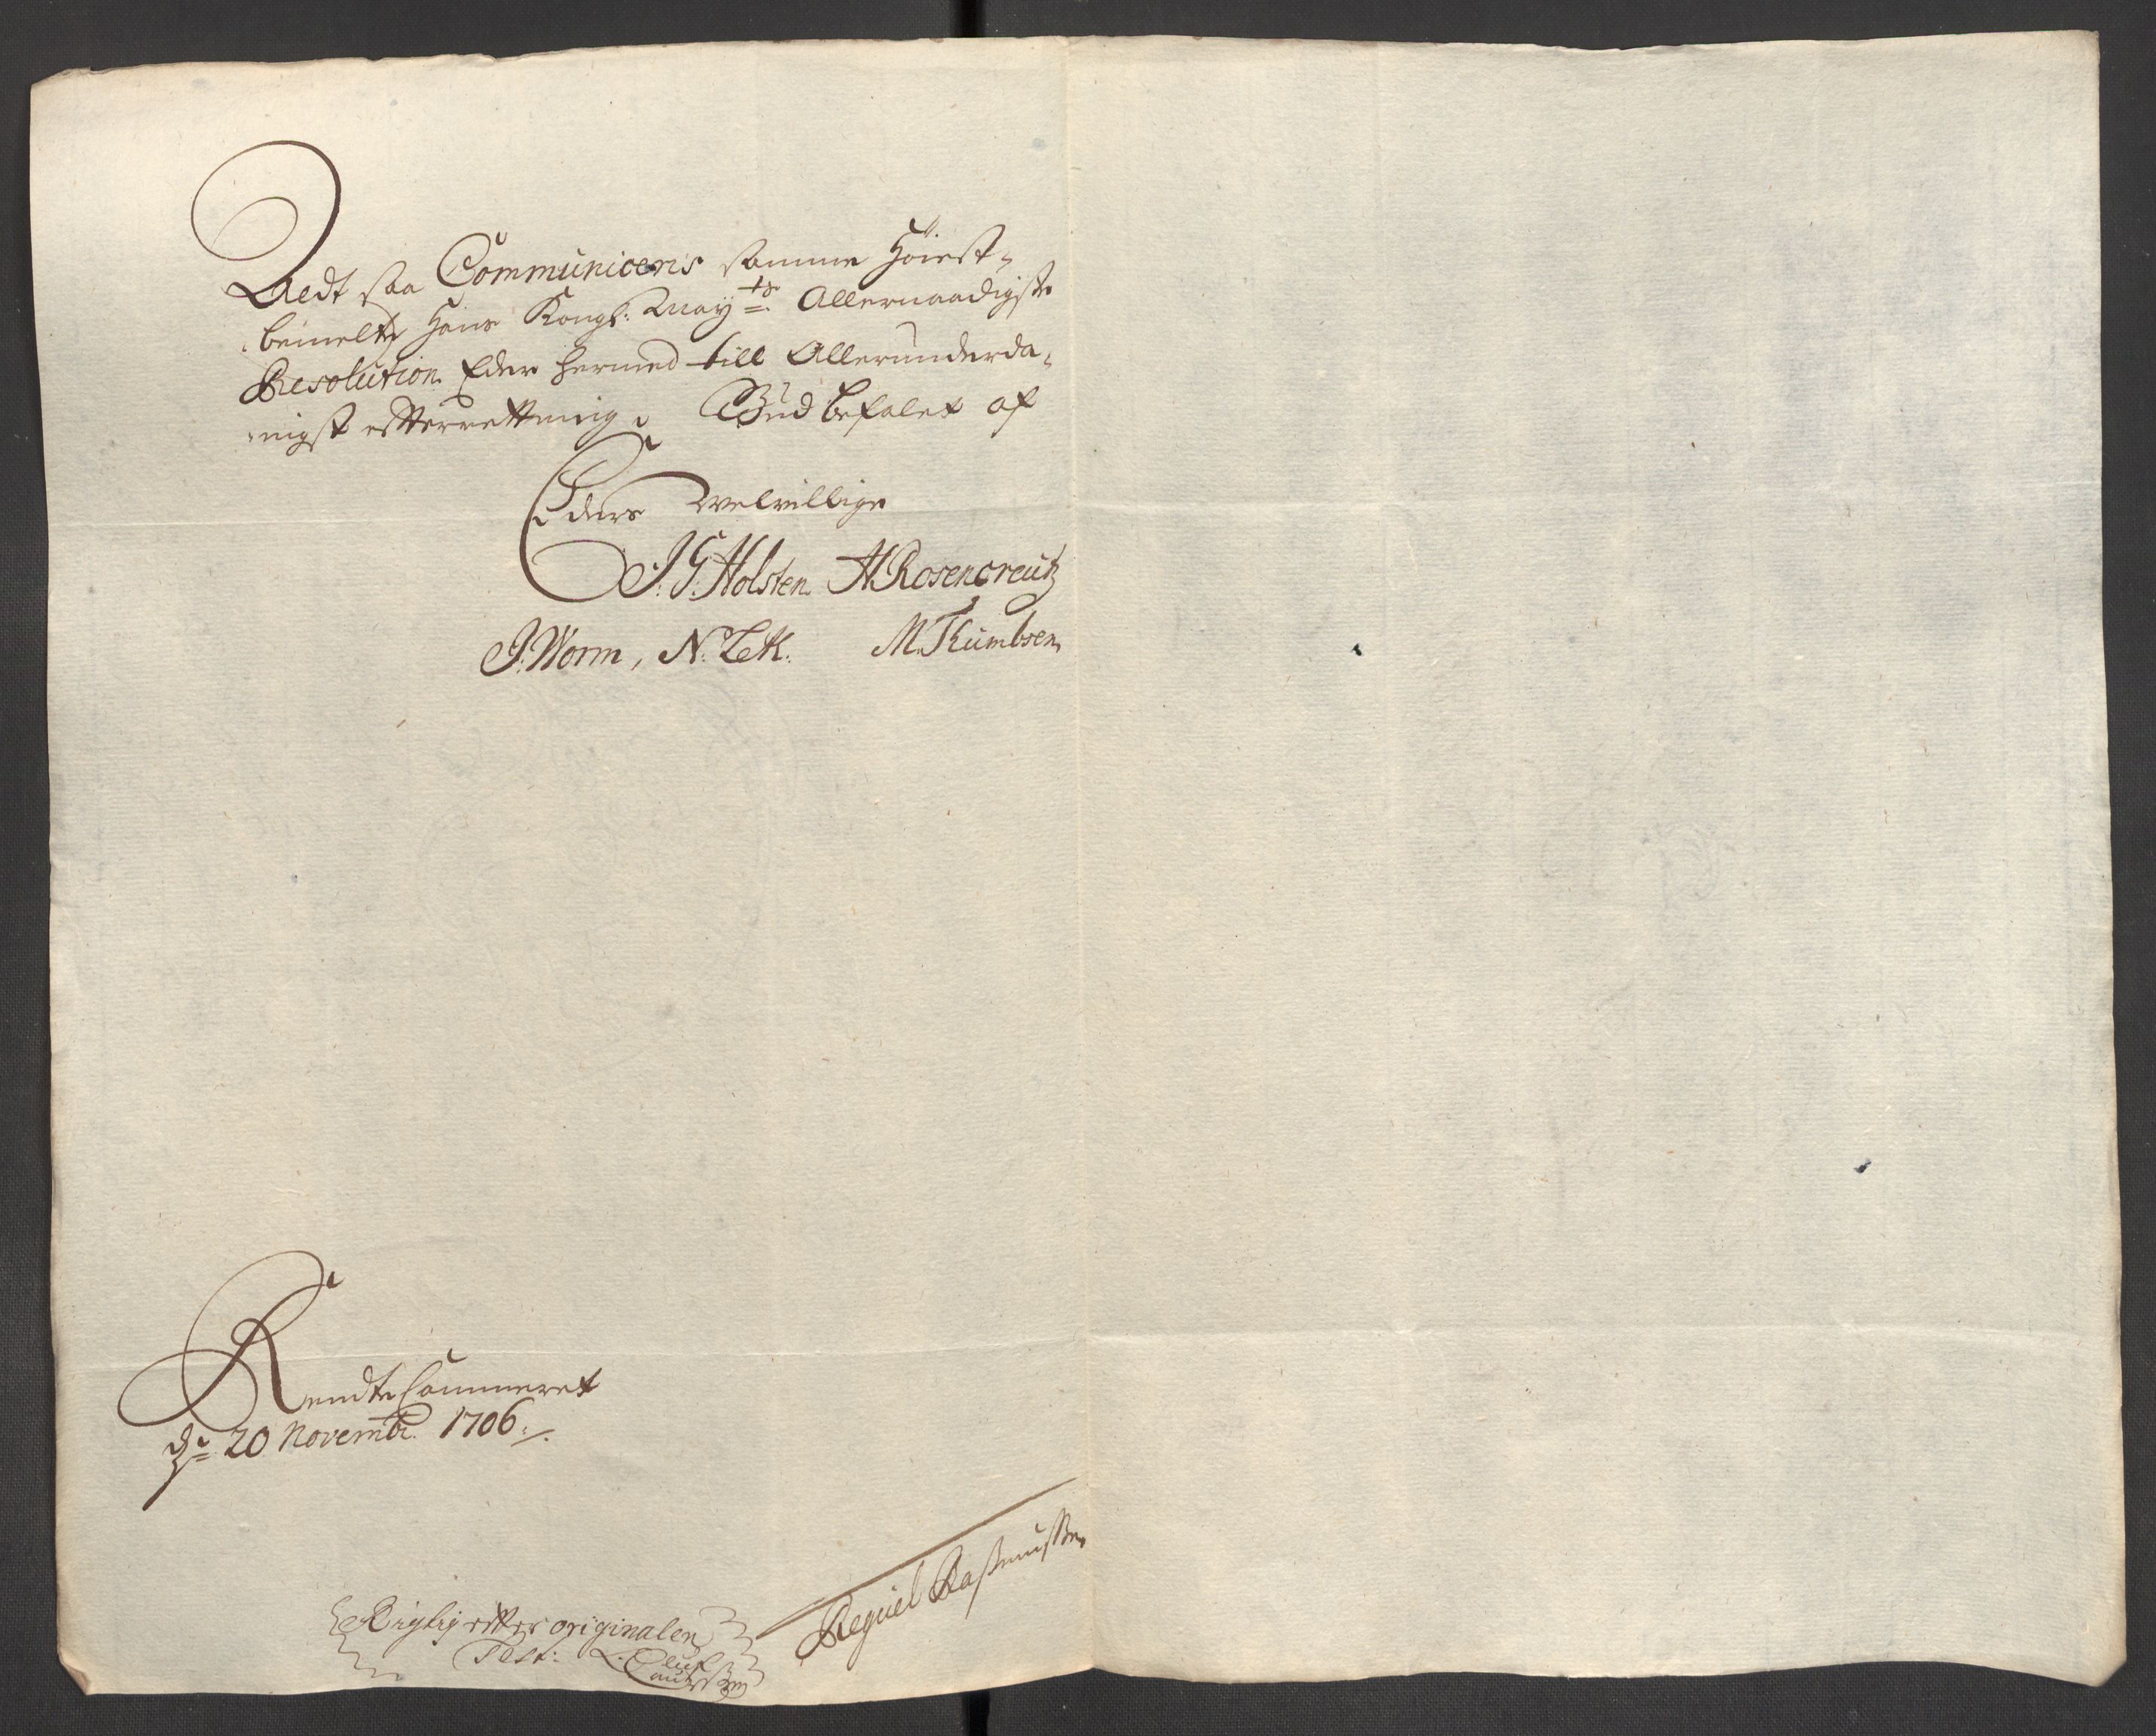 Ladt saa Communiceris samme Höiest-
bemelte Hans Kongl: May:ts Allernaadigste
Resolution Eder hermed till Allerunderda-
nigst efterrettning, Gud befalet af
Eders velvillige
J: G: Holsten. A Rosencreutz
J: Worm, N: M. Thumbsen
Rendte Cammeret
dn 20 Novembr. 1706.
Rigtig efter originalen
Test: Oluf
Reguel Rasmussen